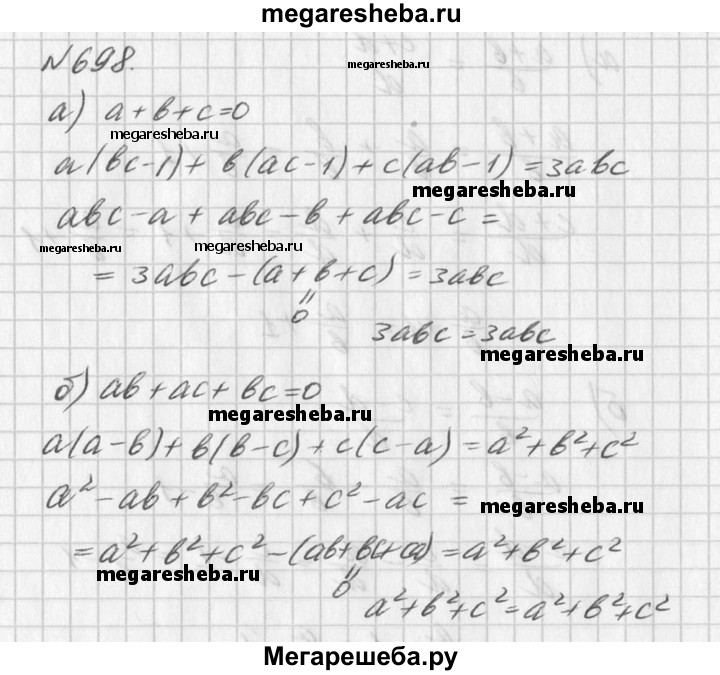 megaresheba.ru
№698.
megaresheba.ru
а) a+b+c=0
megaresheba.ru
a(bc-1)+b(ac-1)+c(ab-1)=3abc
megaresheba.ru
abc-a+abc-b+abc-c=
megaresheba.ru megaresheba.ru
=3abc-(a+b+c)=3abc
॥
0
3abc=3abc
megaresheba.ru
б) ab+ac+bc=0
megaresheba.ru
a(a-b)+b(b-c)+c(c-a)=a²+b²+c²
a²-ab+b²-bc+c²-ac=
megaresheba.ru
=a²+b²+c²-(ab+bc+ca)=a²+b²+c²
megaresheba.ru
॥
0
a²+b²+c²=a²+b²+c²
Мегарешеба.ру